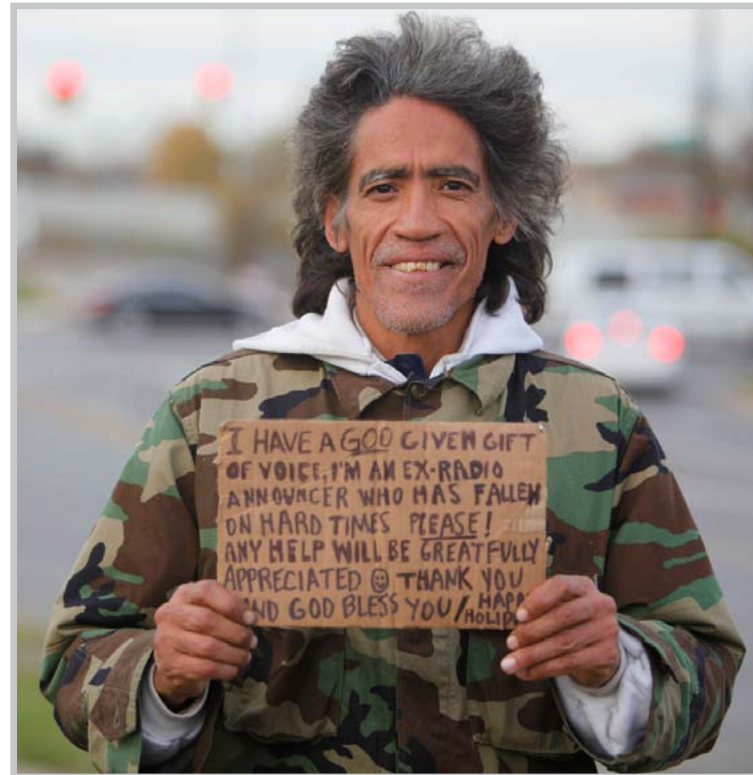 I HAVE A GOD GIVEN GIFT
OF VOICE, I'M AN EX-RADIO
ANNOUNCER WHO HAS FALLEN
ON HARD TIMES PLEASE!
ANY HELP WILL BE GREATFULLY
APPRECIATED ☺ THANK YOU
AND GOD BLESS YOU/ HAPPY
HOLIDA